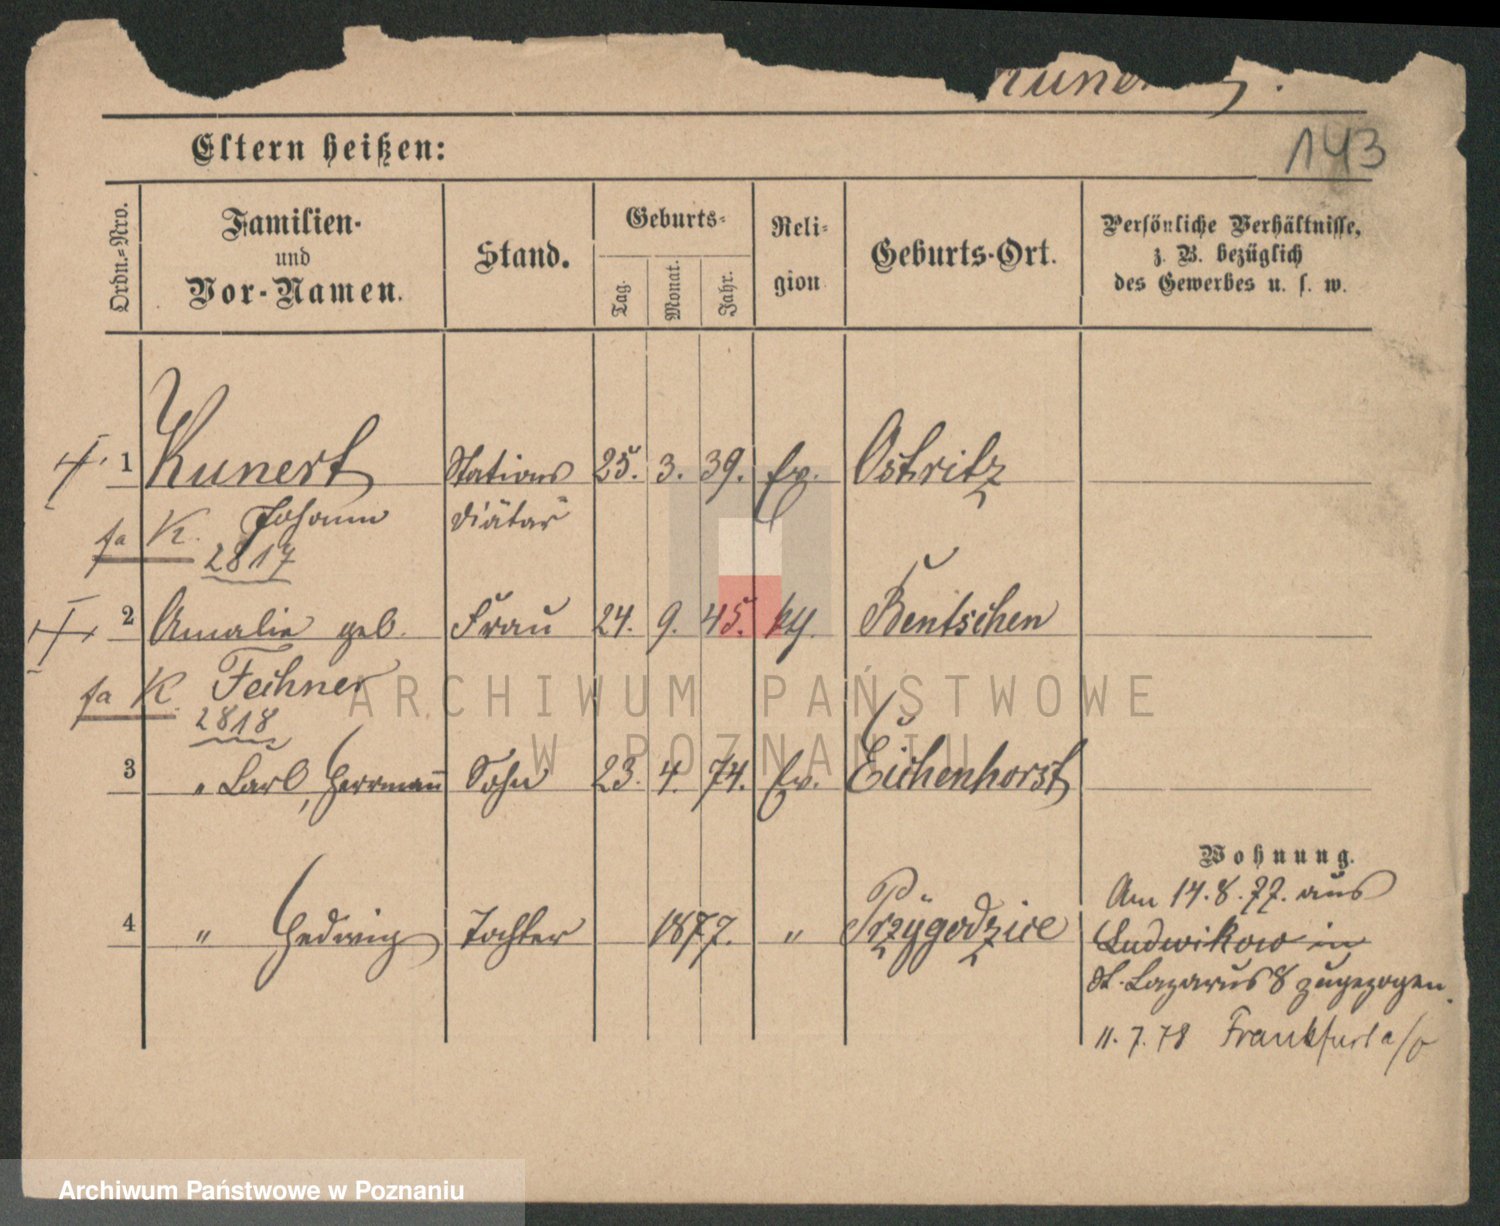 143
Eltern heißen:
Ordn.-Nro.
Familien-
und
Vor-Namen.
Stand.
Geburts-
Tag.
Monat.
Jahr.
Reli-
gion
Geburts-Ort.
Persönliche Verhältnisse,
z. B. bezüglich
des Gewerbes u. s. w.
1 Kunert Stations 25. 3. 39. Ev. Ostritz
fa K. Johann diätar
2817
2 Amalie geb. Frau 24. 9. 45. kth. Bentschen
fa K. Fechner
2818
3 " Carl, Herrmann Sohn 23. 4. 74. Ev. Eichenhorst
Wohnung.
Am 14.8.77. aus
4 " Hedwig Tochter 1877. " Przygodzice Ludwikowo in
St. Lazarus 8 zugezogen.
11. 7. 78 Frankfurt a/o
ARCHIWUM PAŃSTWOWE
W POZNANIU
Archiwum Państwowe w Poznaniu